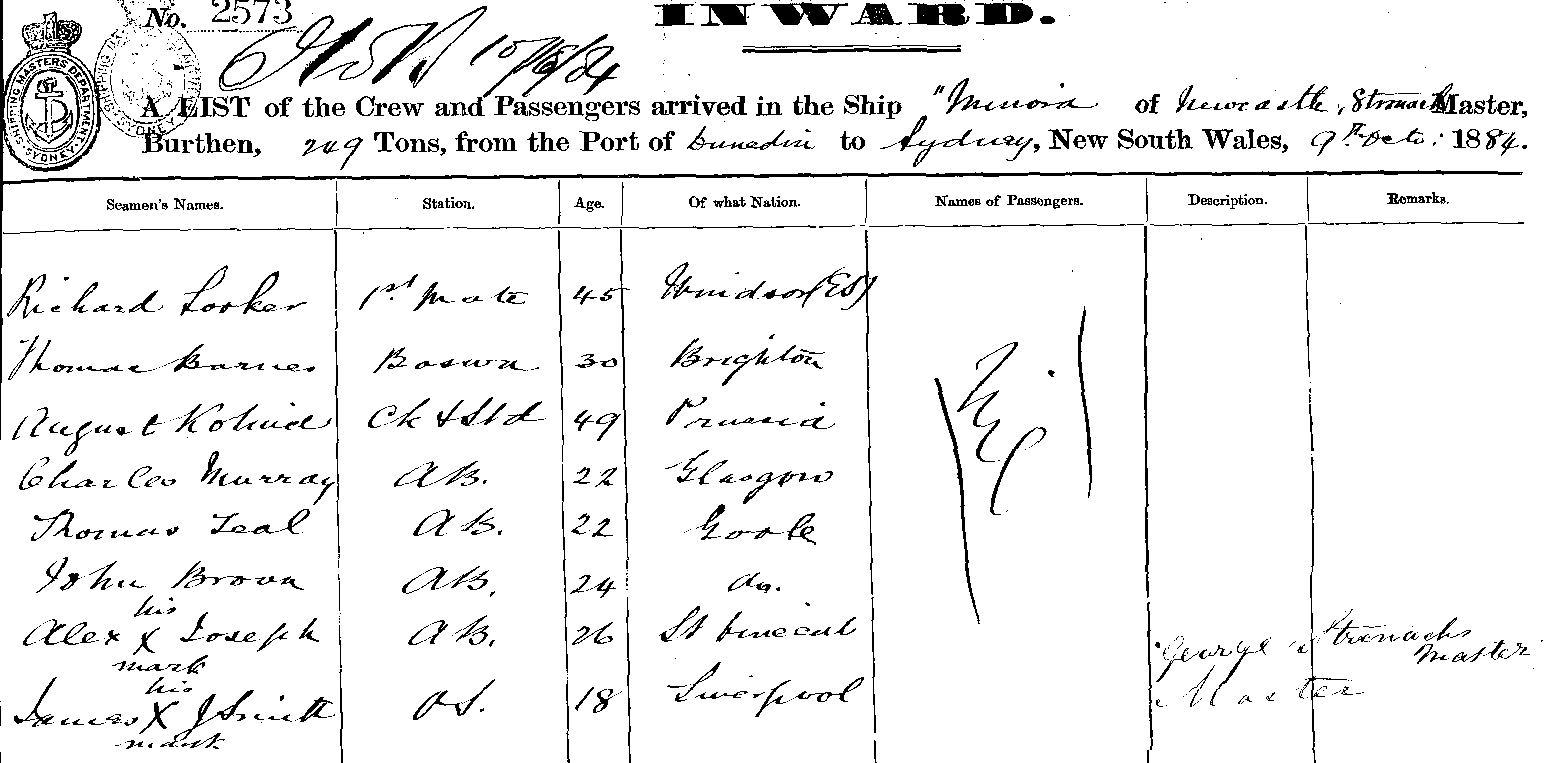 No. 2573
INWARD.
SHIPPING MASTERS DEPARTMENT
SYDNEY
A LIST of the Crew and Passengers arrived in the Ship " of Newcastle, Master,
Burthen, 249 Tons, from the Port of Dunedin to Sydney, New South Wales, 9th Octr: 1884.
Seamen's Names. Station. Age. Of what Nation. Names of Passengers. Description. Remarks.
Richard Looker 1st Mate 45 Windsor
Thomas Barnes Boswn 30 Brighton
August Ck & Std 49 Prussia
Charles Murray AB. 22 Glasgow
Thomas Teal AB. 22 Goole
John Brown AB. 24 do.
his
Alex X Joseph AB. 26 St Vincent
mark
his
James X J Smith OS. 18 Liverpool
mark
Nil
George Master
Master